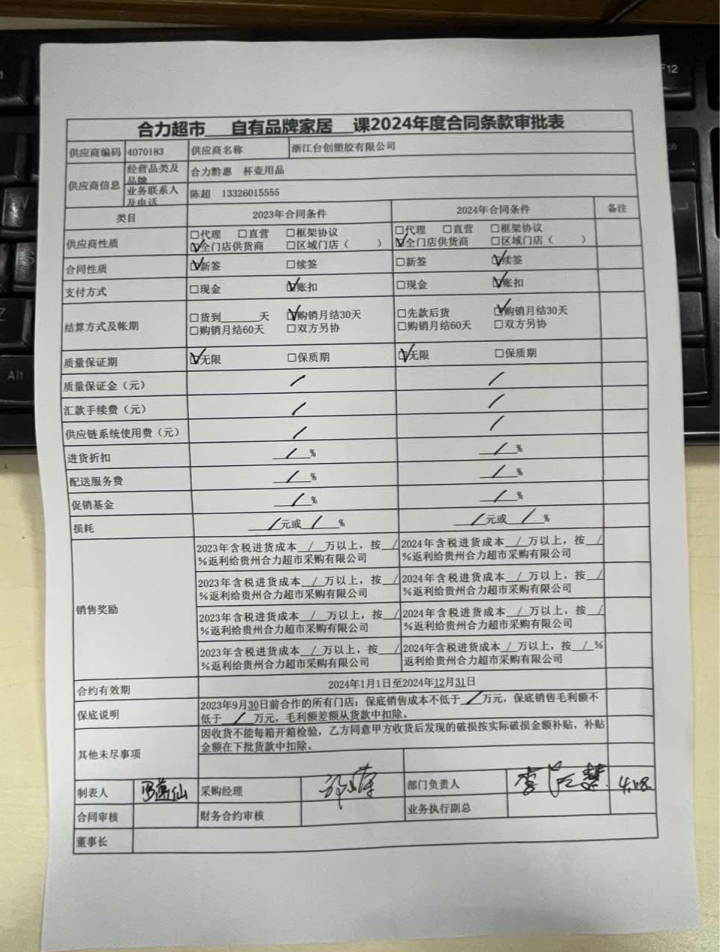 合力超市 自有品牌家居 课2024年度合同条款审批表
供应商编码 4070183 供应商名称 浙江台创塑胶有限公司
供应商信息 经营品类及品牌 合力黔惠 杯壶用品
业务联系人及电话 陈超 13326015555
类目 2023年合同条件 2024年合同条件 备注
供应商性质 □代理 □直营 □框架协议 □代理 □直营 □框架协议
☑全门店供货商 □区域门店（ ） ☑全门店供货商 □区域门店（ ）
合同性质 ☑新签 □续签 □新签 ☑续签
支付方式 □现金 ☑账扣 □现金 ☑账扣
结算方式及帐期 □货到____天 ☑购销月结30天 □先款后货 ☑购销月结30天
□购销月结60天 □双方另协 □购销月结60天 □双方另协
质量保证期 ☑无限 □保质期 ☑无限 □保质期
质量保证金（元） / /
汇款手续费（元） / /
供应链系统使用费（元） / /
进货折扣 / % / %
配送服务费 / % / %
促销基金 / % / %
损耗 /元或 / % /元或 / %
销售奖励
2023年含税进货成本 / 万以上，按 / %返利给贵州合力超市采购有限公司 2024年含税进货成本 / 万以上，按 / %返利给贵州合力超市采购有限公司
2023年含税进货成本 / 万以上，按 / %返利给贵州合力超市采购有限公司 2024年含税进货成本 / 万以上，按 / %返利给贵州合力超市采购有限公司
2023年含税进货成本 / 万以上，按 / %返利给贵州合力超市采购有限公司 2024年含税进货成本 / 万以上，按 / %返利给贵州合力超市采购有限公司
2023年含税进货成本 / 万以上，按 / %返利给贵州合力超市采购有限公司 2024年含税进货成本 / 万以上，按 / %返利给贵州合力超市采购有限公司
合约有效期 2024年1月1日至2024年12月31日
保底说明 2023年9月30日前合作的所有门店：保底销售成本不低于 / 万元，保底销售毛利额不
低于 / 万元，毛利额差额从货款中扣除。
其他未尽事项 因收货不能每箱开箱检验，乙方同意甲方收货后发现的破损按实际破损金额补贴，补贴
金额在下批货款中扣除。
制表人 采购经理 部门负责人 4.18
合同审核 财务合约审核 业务执行副总
董事长